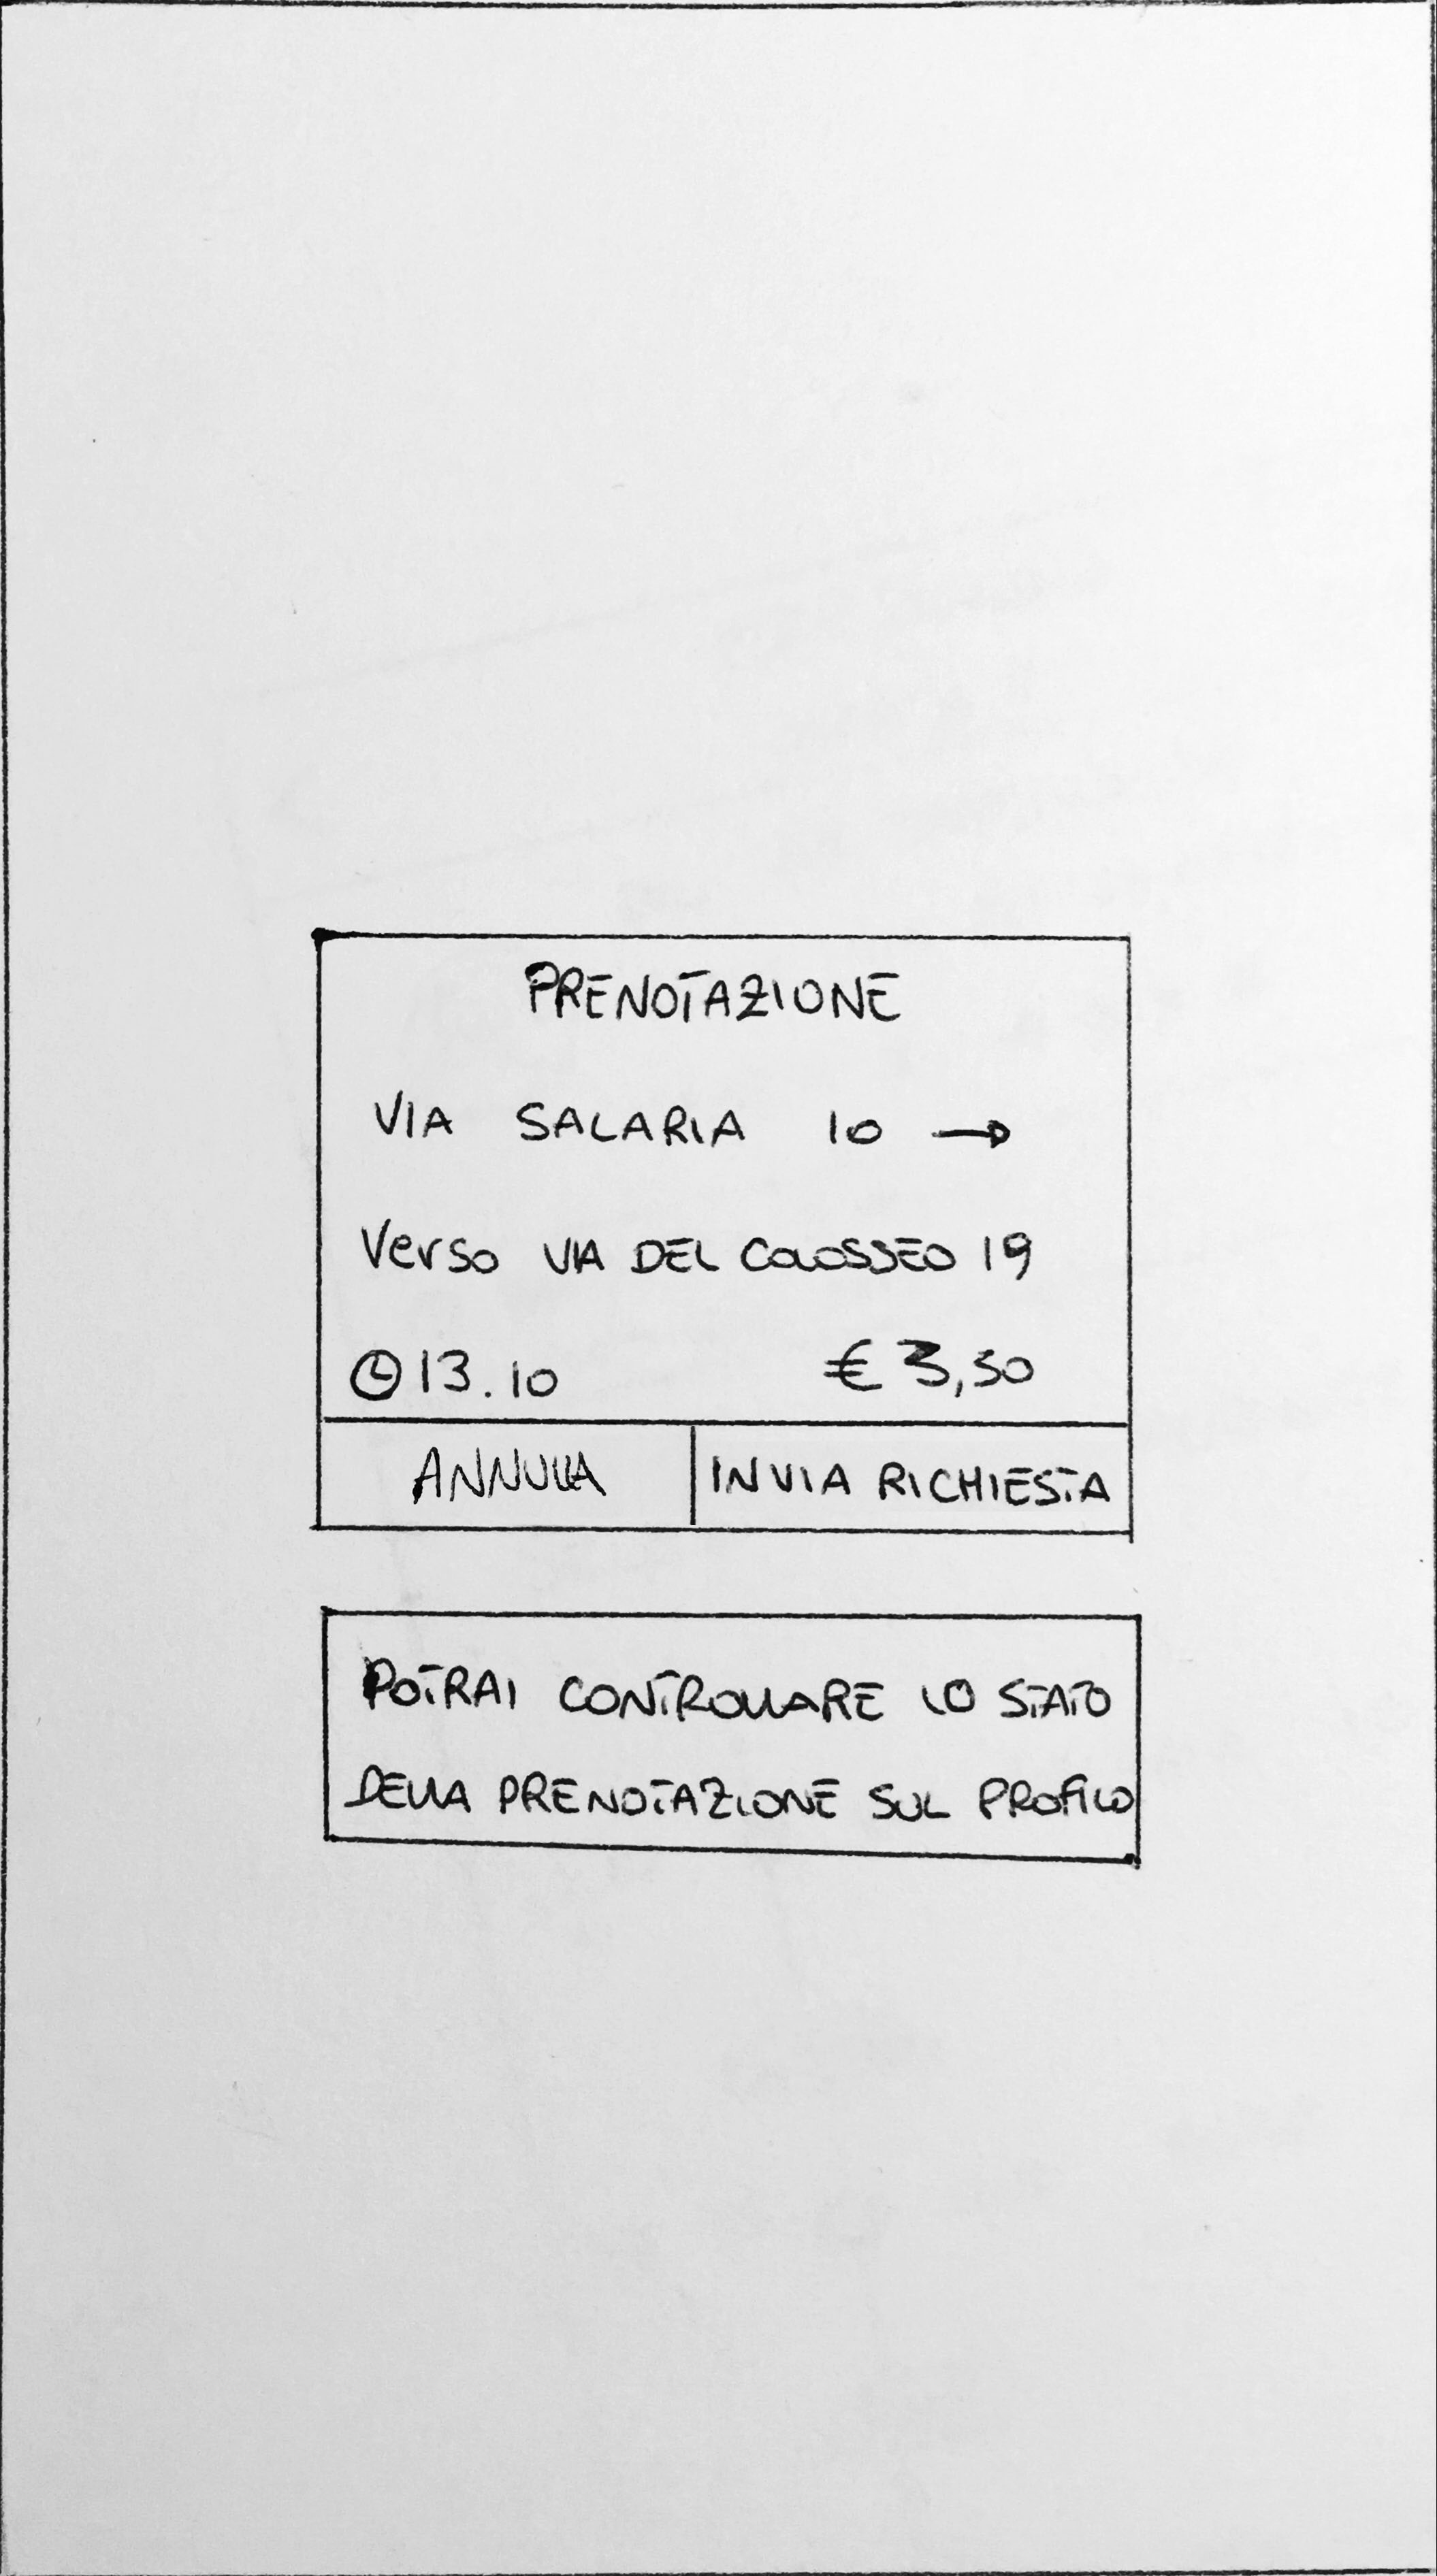 PRENOTAZIONE
VIA SALARIA 10 →
Verso VIA DEL COLOSSEO 19
13.10 € 3,50
ANNULLA INVIA RICHIESTA
POTRAI CONTROLLARE LO STATO
DELLA PRENOTAZIONE SUL PROFILO